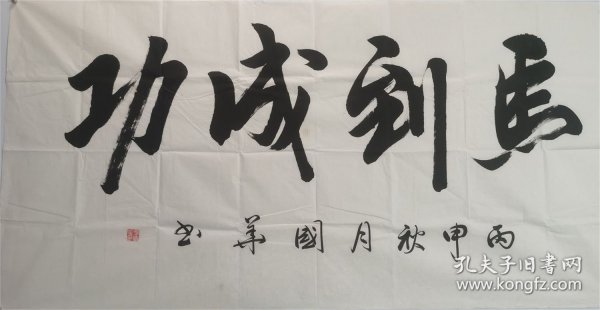 馬到成功
丙申秋月國華书
孔夫子旧书网
www.kongfz.com